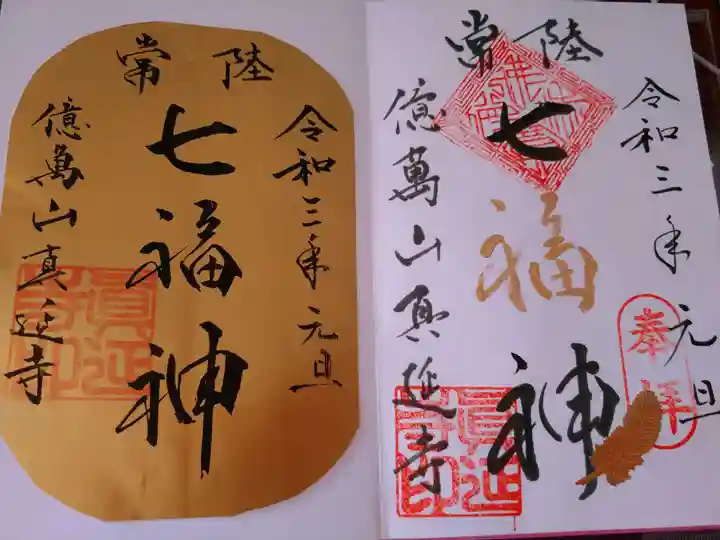 常陸
令和三年元旦
七福神
億萬山真延寺
眞延寺印
常陸
令和三年元旦
七福神
億萬山真延寺
奉拝
眞延寺印